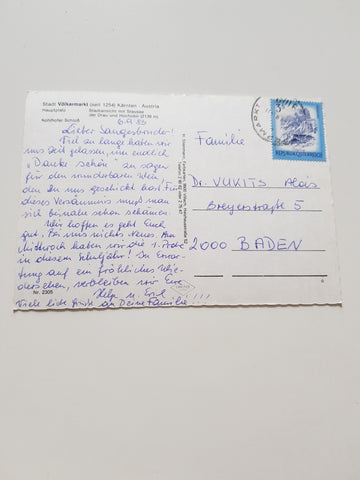 Stadt Völkermarkt (seit 1254) Kärnten - Austria
Hauptplatz
Stadtansicht mit Stausee
der Drau und Hochobir (2139 m)
6.9.83
Lieber Sangesbruder!
Viel zu lange haben wir
uns Zeit gelassen, um endlich
"Danke schön" zu sagen
für den wunderbaren Wein
den Du uns geschickt hast. Für
dieses Versäumnis muß man
sich beinahe schon schämen.
Wir hoffen es geht Euch
gut. Bei uns nichts Neues. Am
Mittwoch haben wir die 1. Probe
in diesem Schuljahr! In Erwar-
tung auf ein fröhliches Wie-
dersehen, verbleiben wir Eure
Helga u.
Viele liebe Grüße an Deine Familie!!!!
Nr. 2305
Familie
Dr. VUKITS Alois
Breyerstraße 5
2000 BADEN
REPUBLIK ÖSTERREICH